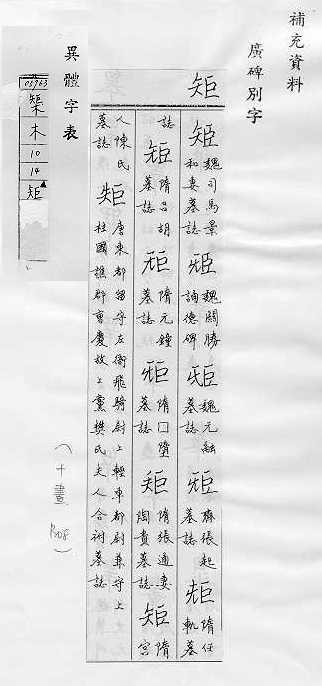 補充資料
廣碑別字
矩
矩魏司馬景和妻墓誌 矩魏關勝誦德碑 矩魏元融墓誌 矩齊張起墓誌 矩隋任軌墓
誌 矩隋呂胡墓誌 矩隋元鐘墓誌 矩隋□墮墓誌 矩隋張通妻陶貴墓誌 矩隋宮
人陳氏墓誌 矩唐東都留守左衛飛騎尉上輕車都尉兼守上柱國譙郡曹慶故上黨樊氏夫人合祔墓誌
異體字表
榘
木
10
14
矩
(十畫